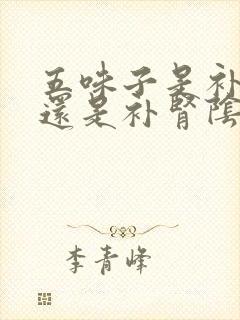 五味子是补
還是补腎陰
李青峰